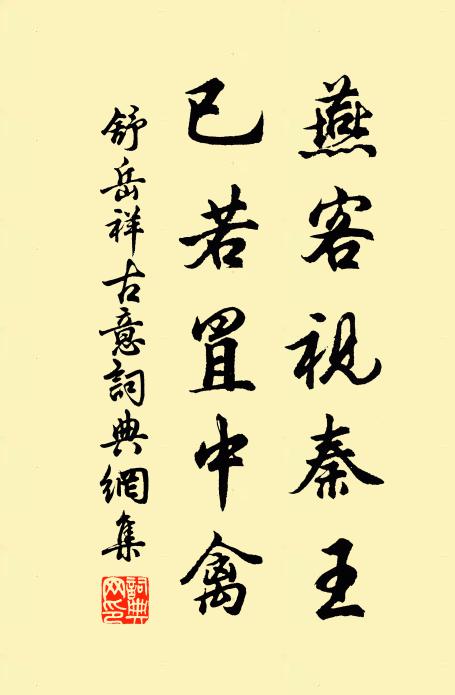 燕客視秦王
已若罝中禽
舒岳祥古意詞典網集
詞典网印